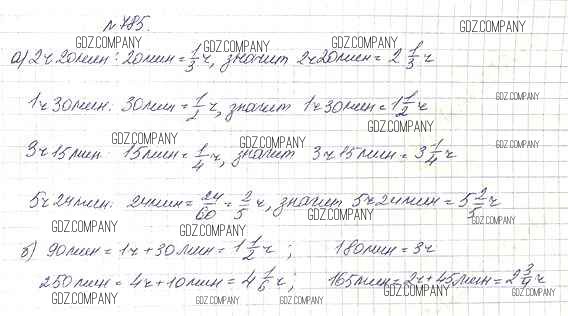 №785.
GDZ.COMPANY
GDZ.COMPANY GDZ.COMPANY GDZ.COMPANY
а) 2ч20мин: 20мин = 1/3 ч, значит 2ч20мин = 2 1/3 ч
GDZ.COMPANY
1ч30мин: 30мин = 1/2 ч, значит 1ч30мин = 1 1/2 ч
GDZ.COMPANY
GDZ.COMPANY GDZ.COMPANY GDZ.COMPANY
3ч15мин: 15мин = 1/4 ч, значит 3ч15мин = 3 1/4 ч
5ч24мин: 24мин = 24/60 = 2/5 ч, значит 5ч24мин = 5 2/5 ч
GDZ.COMPANY GDZ.COMPANY GDZ.COMPANY GDZ.COMPANY
б) 90мин = 1ч + 30мин = 1 1/2 ч; 180мин = 3ч
250мин = 4ч + 10мин = 4 1/6 ч; 165мин = 2ч + 45мин = 2 3/4 ч
GDZ.COMPANY GDZ.COMPANY GDZ.COMPANY GDZ.COMPANY GDZ.COMPANY